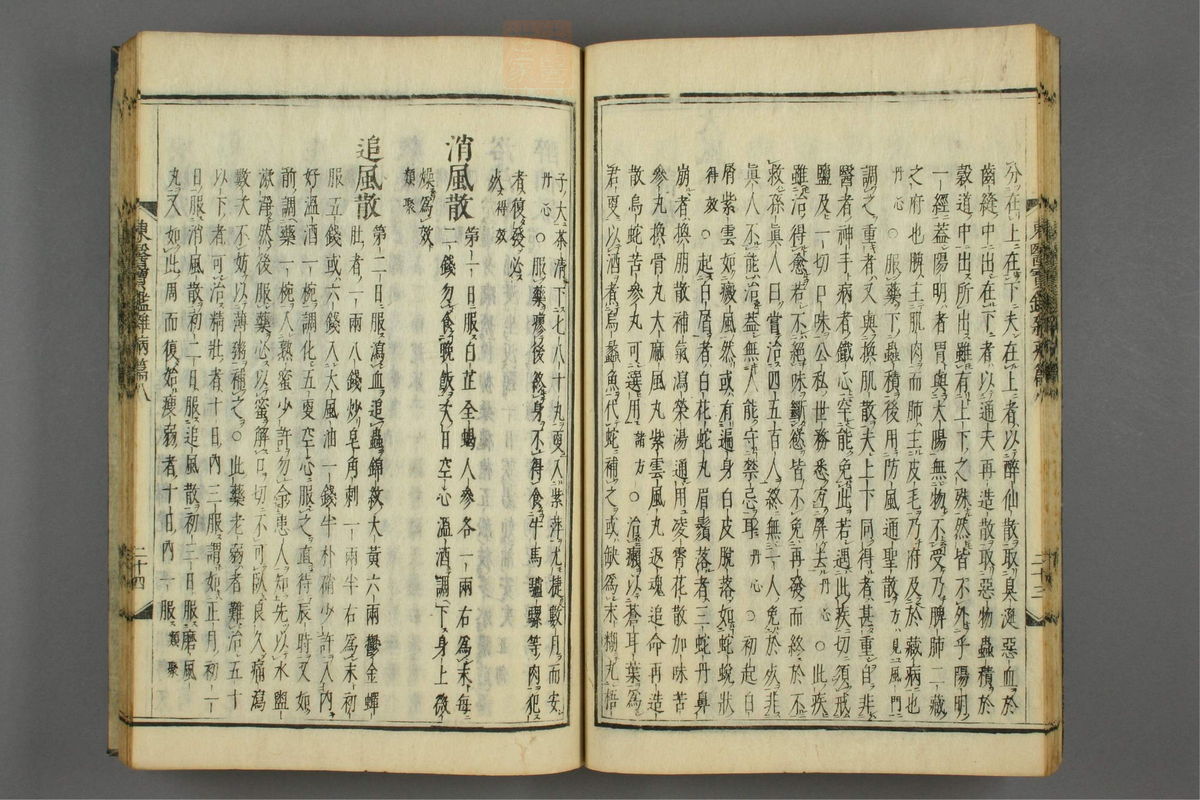 分在上在下夫在上者以醉仙散取臭涎惡血於
齒縫中出在下者以通天再造散取惡物蟲積於
穀道中出所出雖有上下之殊然皆不外乎陽明
一經盖陽明者胃與大腸無物不受乃脾肺二藏
之府也脾主肌肉而肺主皮毛乃府及於藏病也
丹心○服藥下蟲積後用防風通聖散方見風門
調之重者又與換肌散夫上下同得者甚重自非
醫者神手病者鐵心罕能免此若遇此疾切須戒
鹽及一切口味公私世務悉宜屏去丹心○此疾
雖治得愈若不絕味斷慾皆不免再發而終於不
救孫眞人曰嘗治四五百人終無一人免於死非
眞人不能治盖無人能守禁忌耳丹心○初起白
屑紫雲如癜風然或有遍身白皮脫落如蛇蛻狀
得效○起白屑者白花蛇丸眉鬚落者三蛇丹鼻
崩者換肌散補氣瀉榮湯通用凌霄花散加味苦
參丸換骨丸大麻風丸紫雲風丸返魂追命再造
散烏蛇苦參丸可選用諸方○治癩以蒼耳葉爲
君更以浮萍者烏蠡魚代蛇補之或缺爲末糊丸梧
東醫寶鑑雜病篇八
二十三
子大茶淸下七八十丸更入紫萍尤捷數月而安
丹心○服藥瘳後終身不得食牛馬驢騾等肉犯
者復發必死得效
消風散 第一日服白芷全蝎人參各一兩右爲末每
二錢勿食晩飯次日空心溫酒調下身上微
燥爲效類聚
追風散 第二日服瀉血追蟲錦紋大黃六兩鬱金蟬
肚者一兩八錢炒皂角刺一兩半右爲末初
服五錢或六錢入大風油一錢半朴硝少許入內
好溫酒一椀調化五更空心服之直待辰時又如
前調藥一椀入熟蜜少許勿令患人知先以水盥
漱淨然後服藥必以蜜解口切不可臥良久痛瀉
數次不妨以薄粥補之○此藥老弱者難治五十
以下者可治精壯者十日內三服謂如正月初一
日服消風散初二日服追風散初三日服磨風
丸又如此周而復始瘦弱者十日內一服類聚
東醫寶鑑雜病篇八
二十四